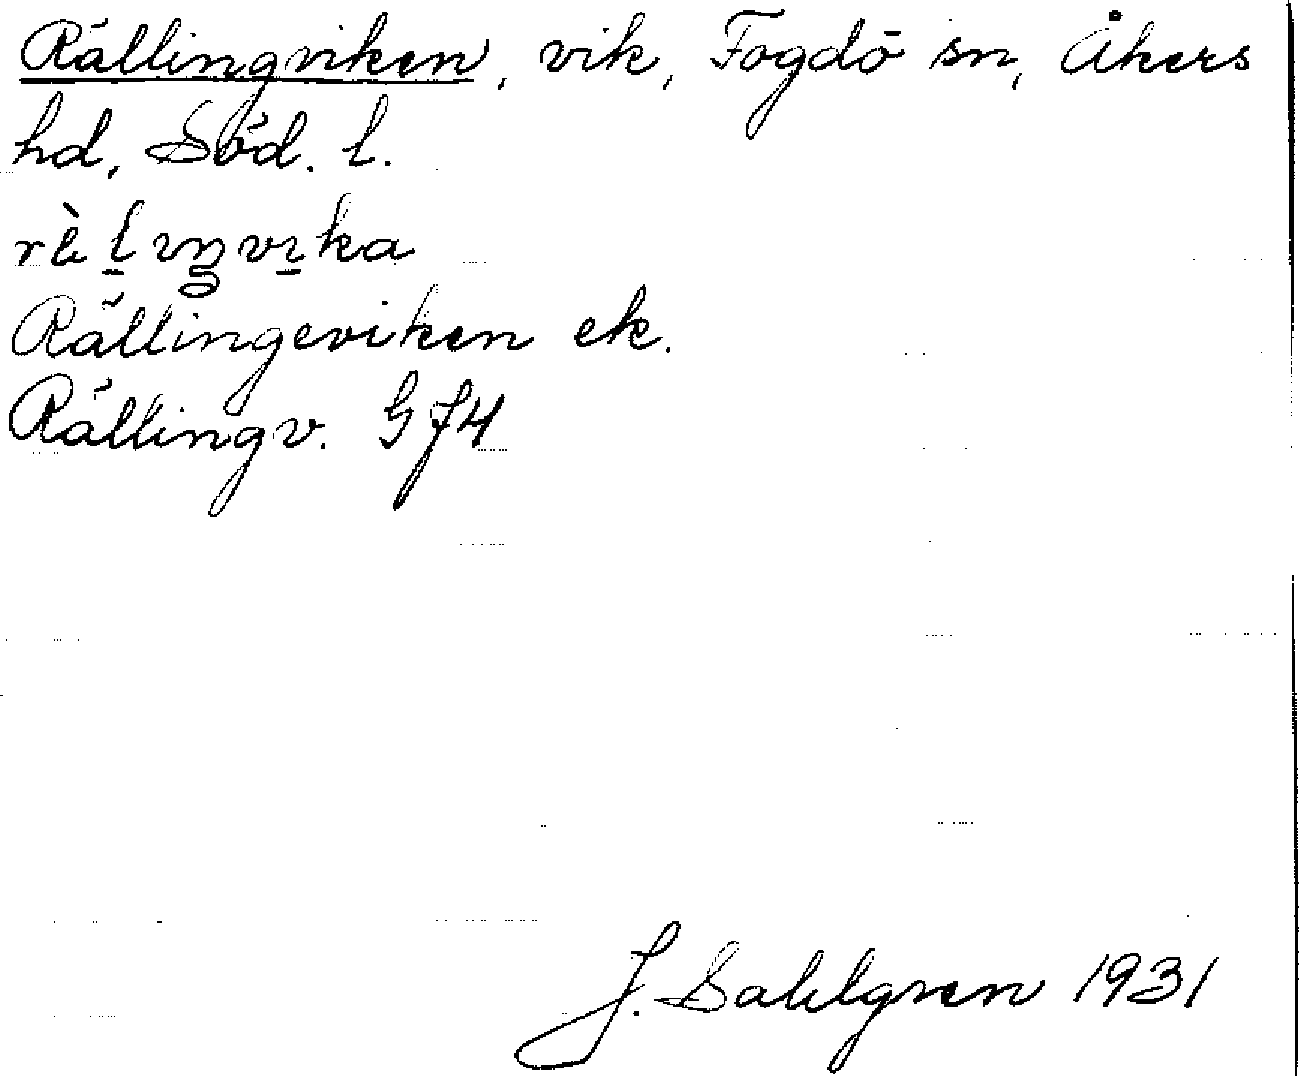 Rällingviken, vik, Fogdö sn, Åkers
hd, Söd. l.
Rällingeviken ek.
Rällingv. GJH
J. Sahlgren 1931